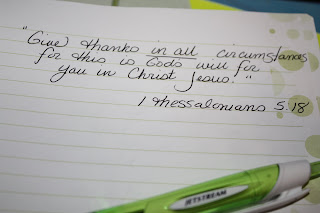 "Give thanks in all circumstances
for this is Gods will for
you in Christ Jesus."
1 Thessalonians 5:18
JETSTREAM